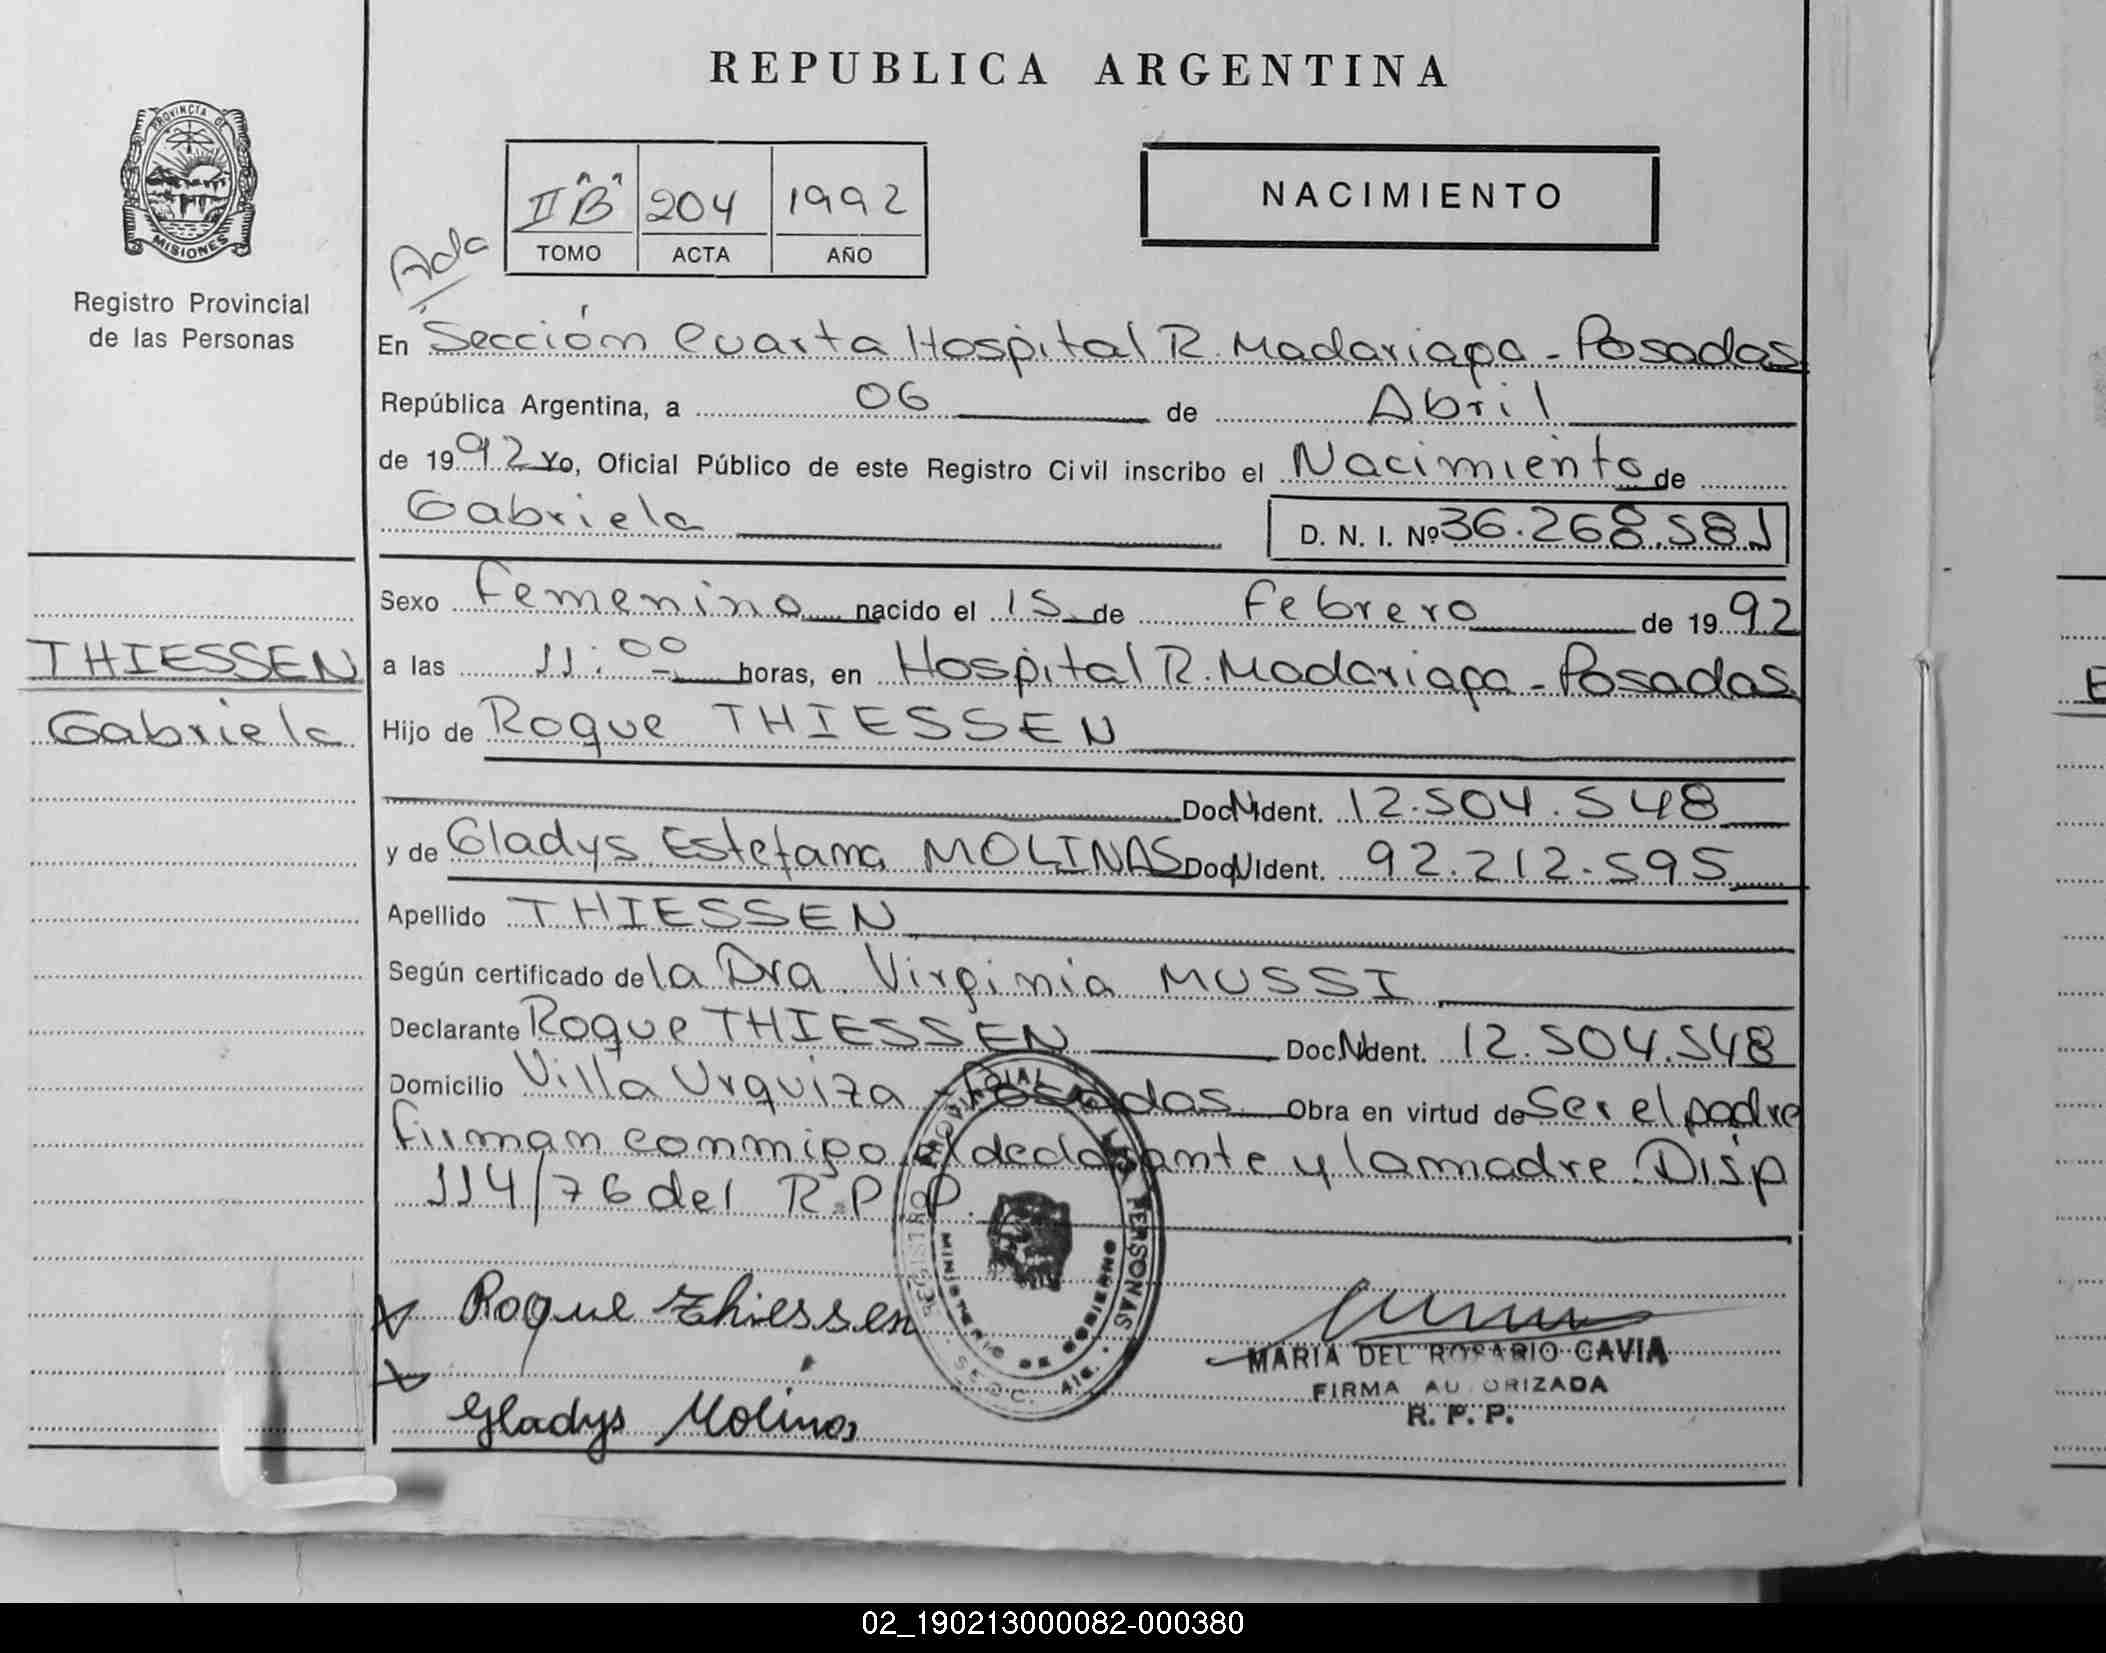 REPUBLICA ARGENTINA
PROVINCIA DE
MISIONES
Registro Provincial
de las Personas
II "B" 204 1992
TOMO ACTA AÑO
NACIMIENTO
En Sección Cuarta Hospital R. Madariaga - Posadas
República Argentina, a 06 de Abril
de 1992 Yo, Oficial Público de este Registro Civil inscribo el Nacimiento de
Gabriela D. N. I. Nº 36.268.581
Sexo Femenino nacido el 15 de Febrero de 1992
THIESSEN
Gabriela
a las 11:00 horas, en Hospital R. Madariaga - Posadas
Hijo de Roque THIESSEN
Doc. N Ident. 12.504.548
y de Gladys Estefana MOLINAS Doc. N Ident. 92.212.595
Apellido THIESSEN
Según certificado de la Dra. Virginia MUSSI
Declarante Roque THIESSEN Doc. N Ident. 12.504.548
Domicilio Villa Urquiza - Posadas Obra en virtud de Ser el padre
firman conmigo el declarante y la madre. Disp
114/76 del R.P.P.
REGISTRO PROVINCIAL DE LAS PERSONAS
MINISTERIO DE GOBIERNO
Roque Thiessen
Gladys Molinas
MARIA DEL ROSARIO CAVIA
FIRMA AUTORIZADA
R. P. P.
02_190213000082-000380